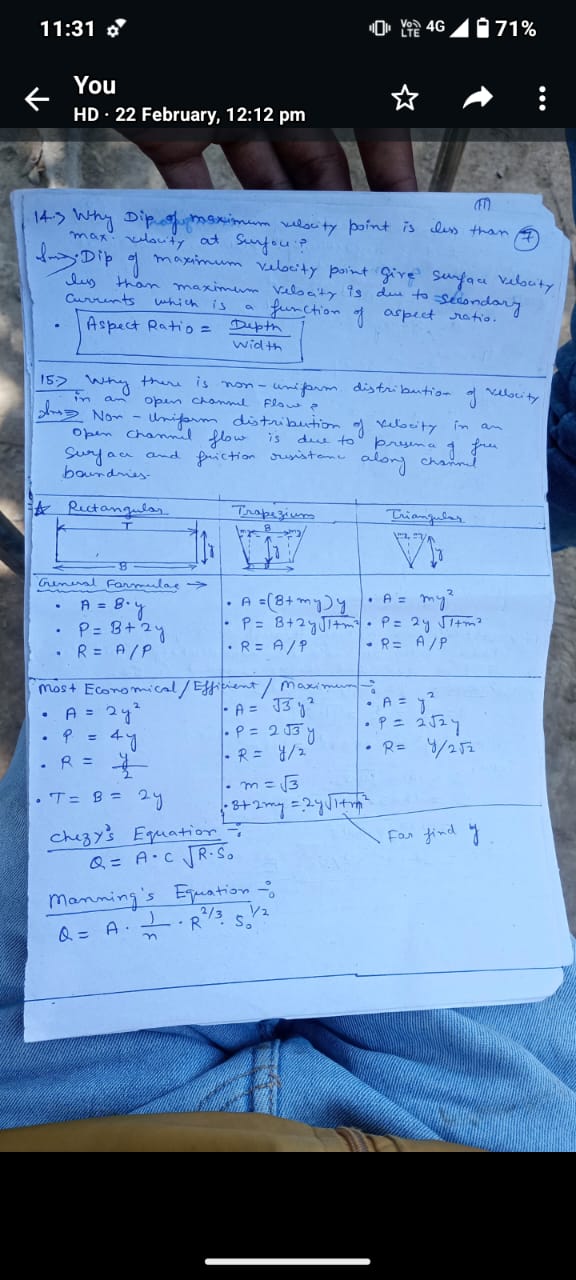 11:31
Vo)) LTE 4G 71%
You
HD · 22 February, 12:12 pm
14.> Why Dip of maximum velocity point is less than
max. velocity at Surface?
7
Ans=> Dip of maximum velocity point give surface velocity
less than maximum velocity is due to secondary
currents which is a function of aspect ratio.
• Aspect Ratio = Depth / Width
15.> Why there is non-uniform distribution of velocity
in an open channel flow?
Ans=> Non-Uniform distribution of velocity in an
open channel flow is due to presence of free
surface and friction resistance along channel
boundries.
Rectangular Trapezium Triangular
T
B
y
B
y
B
y
General Formulae →
• A = B·y
• P = B+2y
• R = A/P
• A = (B+my)y
• P = B+2y√1+m²
• R = A/P
• A = my²
• P = 2y √1+m²
• R = A/P
Most Economical/Efficient/Maximum :-
• A = 2y²
• P = 4y
• R = y/2
• T = B = 2y
• A = √3 y²
• P = 2√3 y
• R = y/2
• m = √3
• B+2my = 2y√1+m²
• A = y²
• P = 2√2 y
• R = y/2√2
For find y.
Chezy's Equation :-
Q = A·C √R·S₀
Manning's Equation :-
Q = A · 1/n · R^2/3 · S₀^1/2